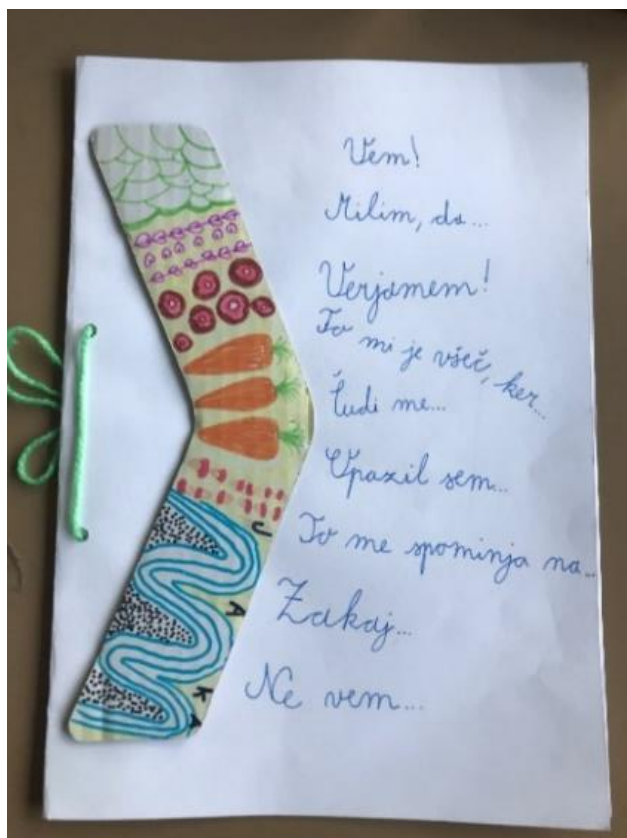 Vem!
Milim, da...
Verjamem!
To mi je všeč, ker...
Čudi me...
Opazil sem...
To me spominja na..
Zakaj...
Ne vem...
JAKA